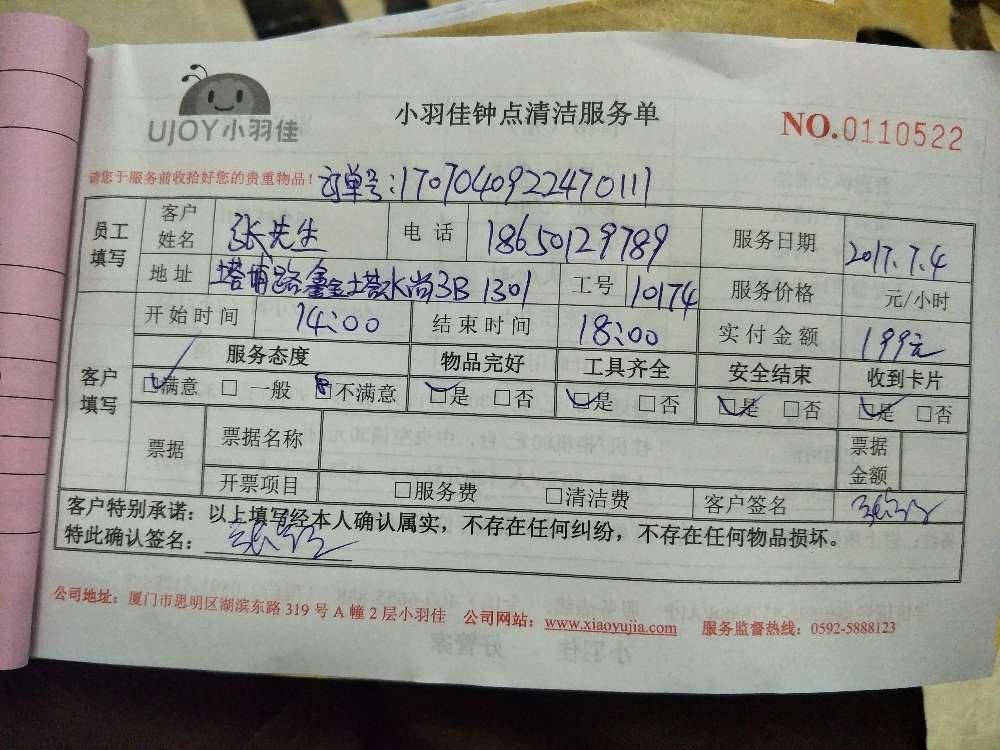 UJOY小羽佳
小羽佳钟点清洁服务单
NO.0110522
请您于服务前收拾好您的贵重物品！ 订单号：1707040922470111
员工填写 客户姓名 张先生 电话 18650129789 服务日期 2017.7.4
地址 塔埔路鑫塔水尚3B 1301 工号 10174 服务价格 元/小时
开始时间 14:00 结束时间 18:00 实付金额 199元
客户填写 服务态度 物品完好 工具齐全 安全结束 收到卡片
☑满意 □一般 □不满意 ☑是 □否 ☑是 □否 ☑是 □否 ☑是 □否
票据 票据名称 票据金额
开票项目 □服务费 □清洁费 客户签名
客户特别承诺：以上填写经本人确认属实，不存在任何纠纷，不存在任何物品损坏。
特此确认签名：
公司地址：厦门市思明区湖滨东路 319 号 A 幢 2 层小羽佳 公司网站：www.xiaoyujia.com 服务监督热线：0592-5888123